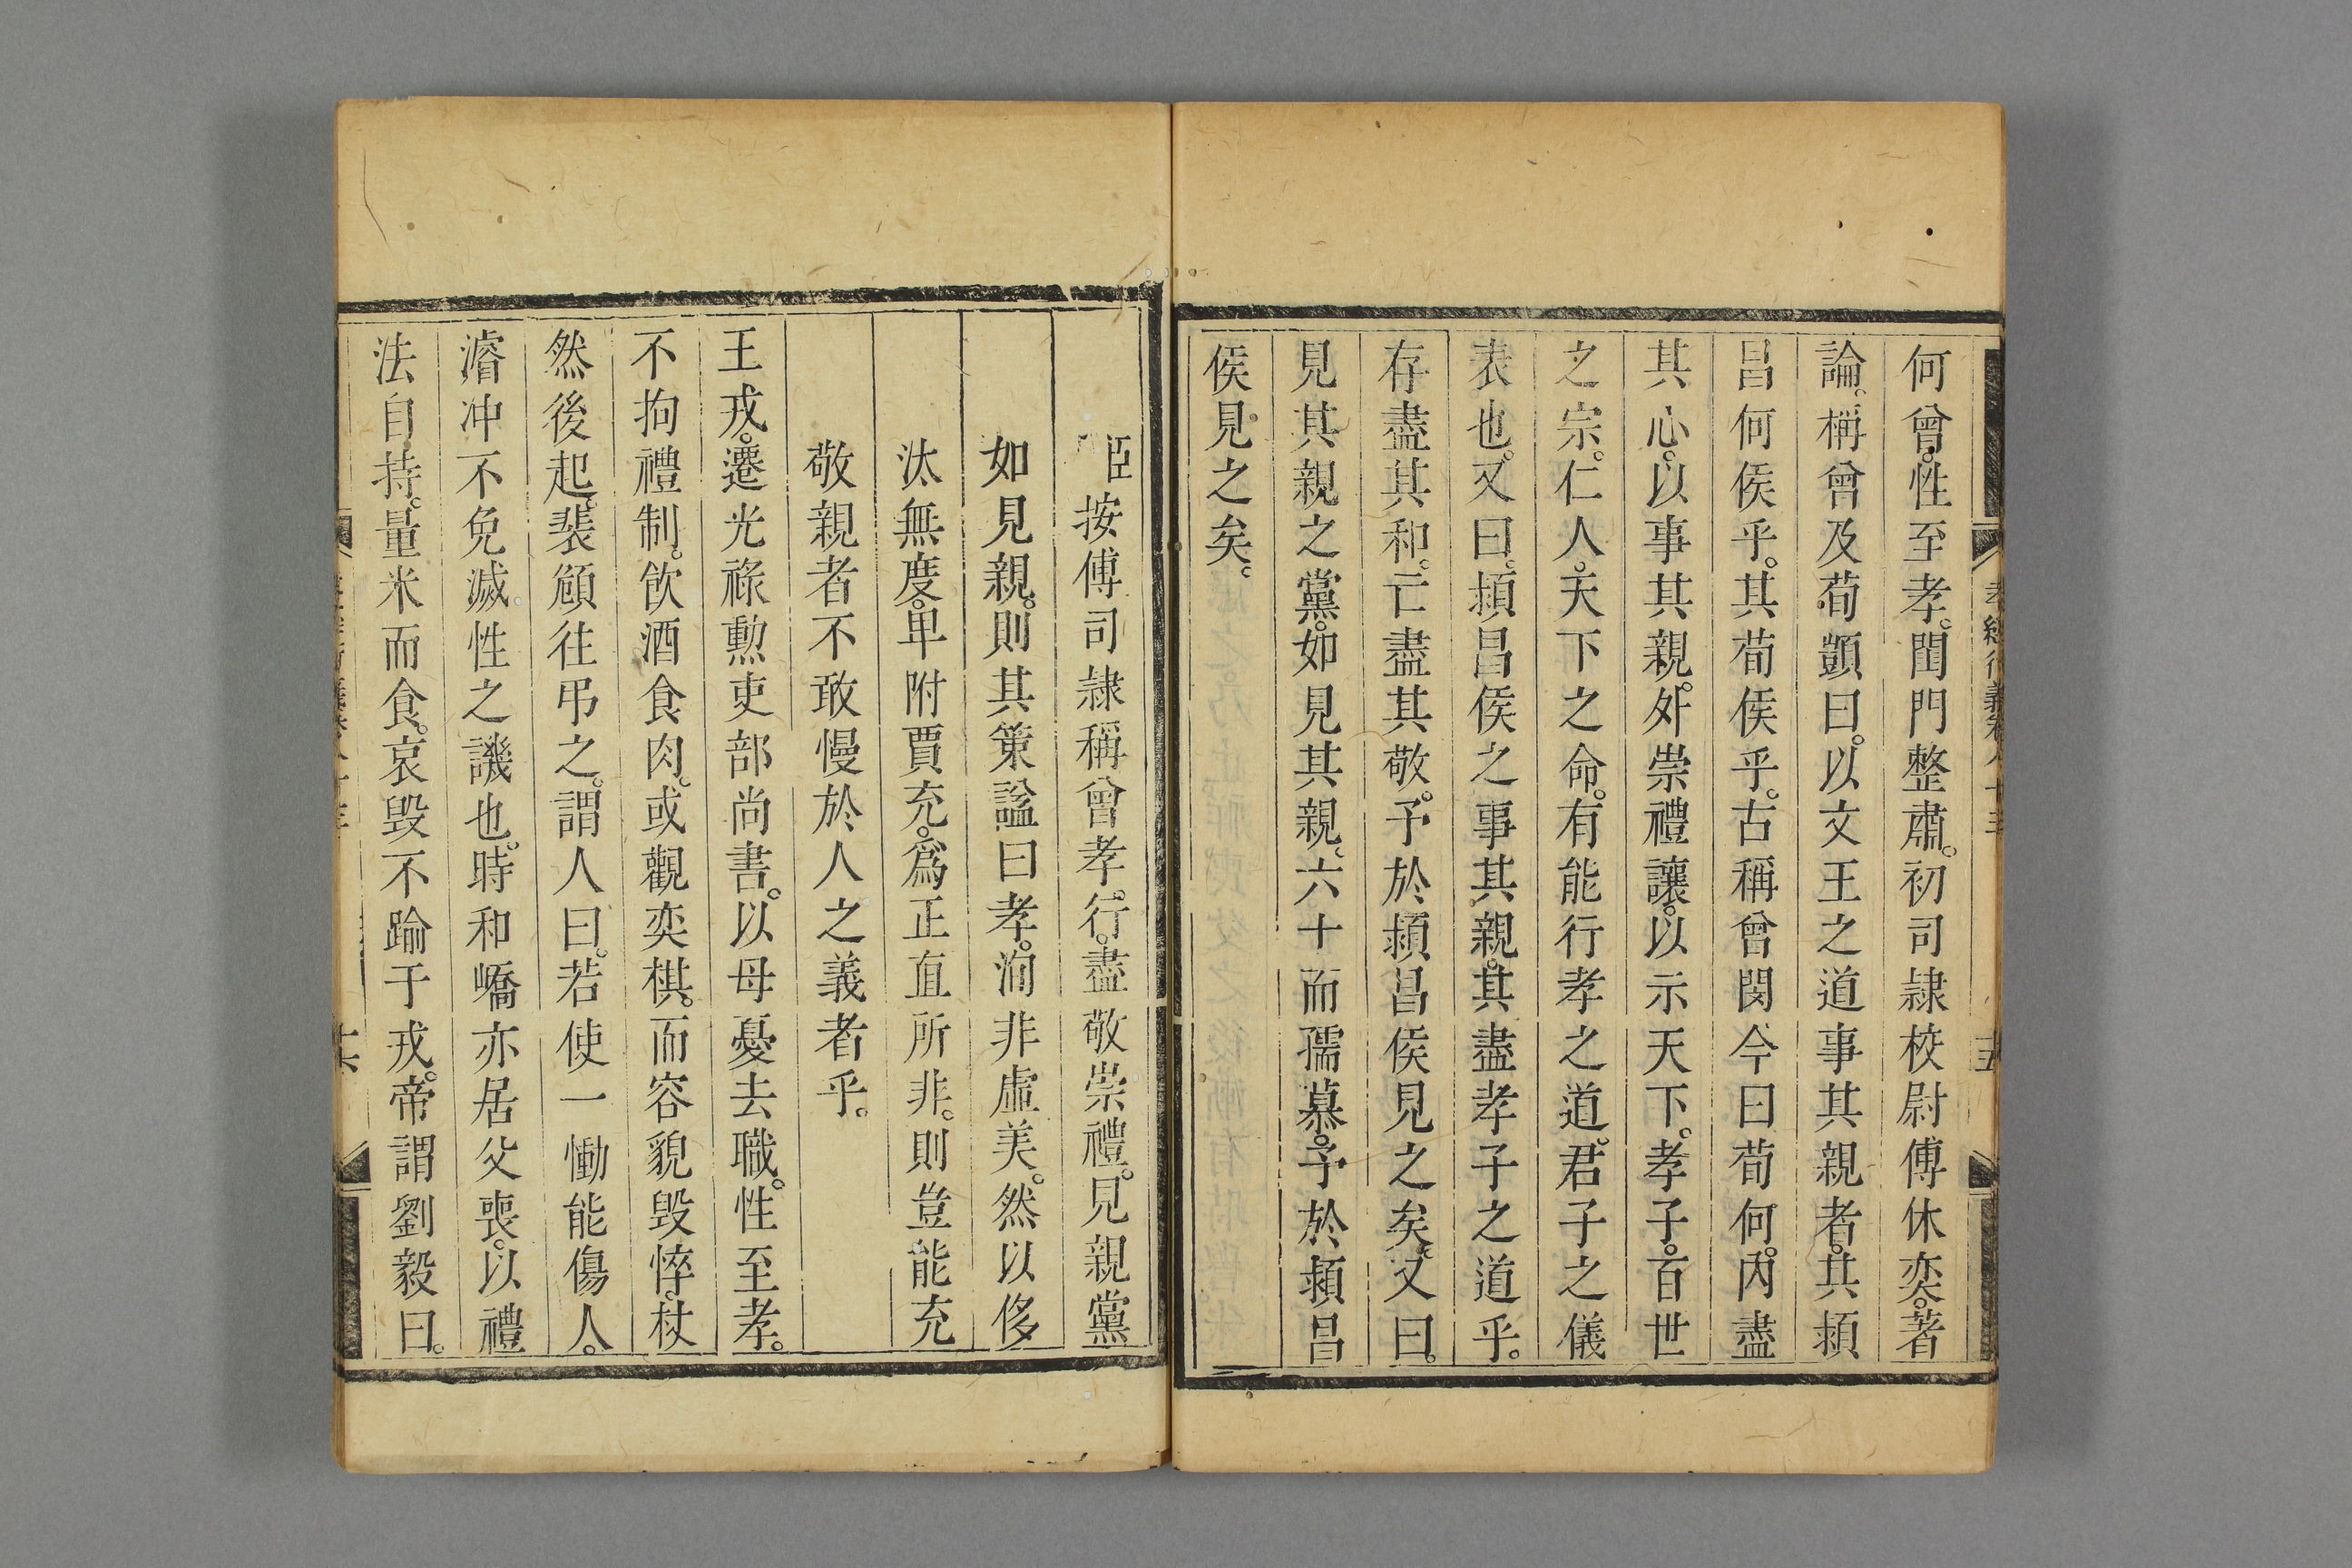 何曾。性至孝。閨門整肅。初司隷校尉傅休奕。著
論。稱曾及荀顗曰。以文王之道事其親者。其頴
昌何侯乎。其荀侯乎。古稱曾閔今曰荀何。內盡
其心。以事其親。外崇禮讓。以示天下。孝子。百世
之宗。仁人。天下之命。有能行孝之道。君子之儀
表也。又曰。頴昌侯之事其親。其盡孝子之道乎。
存盡其和。亡盡其敬。予於頴昌侯見之矣。又曰。
見其親之黨。如見其親。六十而孺慕。予於頴昌
侯見之矣。
臣按傅司隷稱曾孝。行。盡敬崇禮。見親黨
如見親。則其策謚曰孝。洵非虛美。然以侈
汰無度。卑附賈充。爲正直所非。則豈能充
敬親者不敢慢於人之義者乎。
王戎。遷光祿勲吏部尚書。以母憂去職。性至孝。
不拘禮制。飲酒食肉。或觀奕棋。而容貌毀悴。杖
然後起。裴頠往弔之。謂人曰。若使一慟能傷人。
濬冲不免滅性之譏也。時和嶠亦居父喪。以禮
法自持。量米而食。哀毀不踰于戎。帝謂劉毅曰。